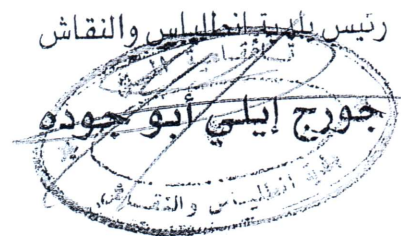 رئيس بلدية انطلياس والنقاش
جورج إيلي أبو جوده
بلدية انطلياس والنقاش